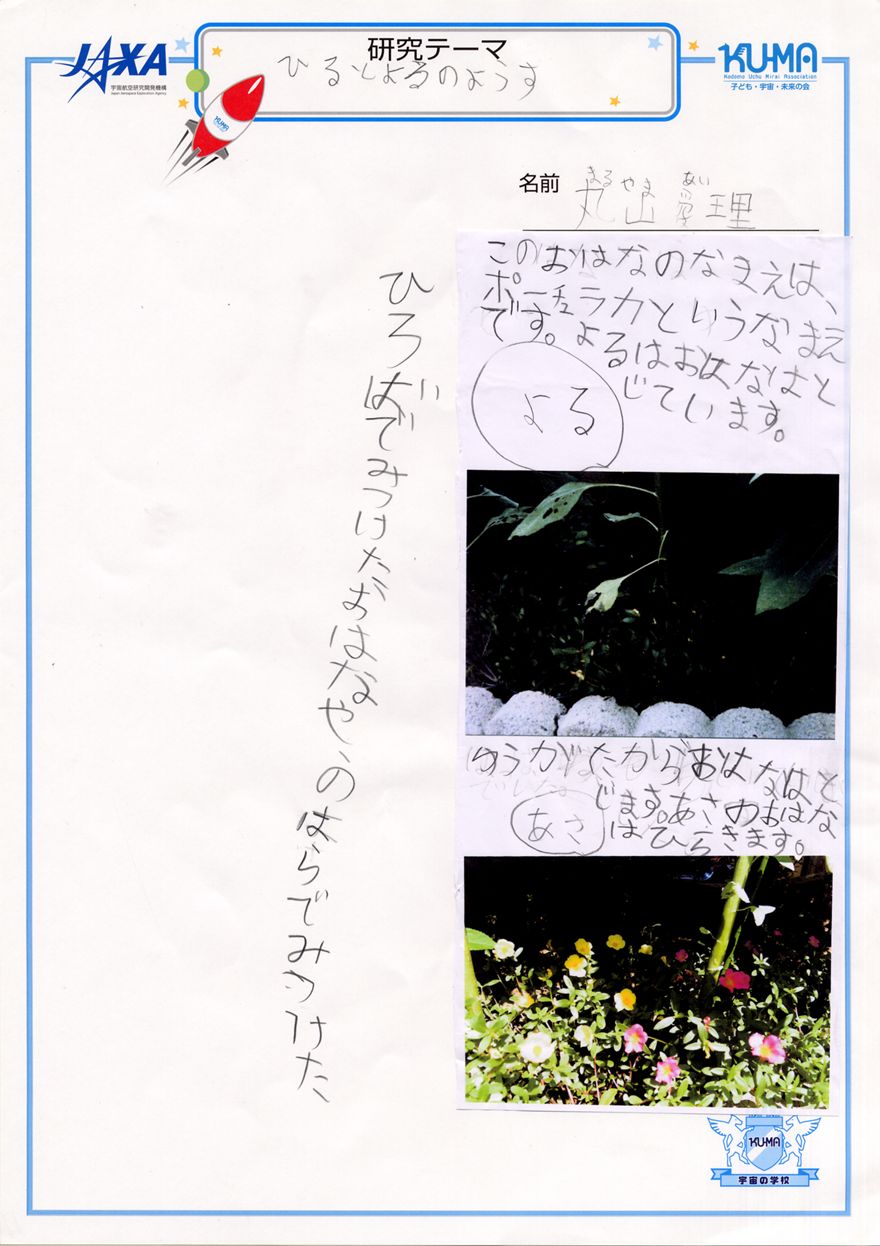 JAXA
宇宙航空研究開発機構
Japan Aerospace Exploration Agency
研究テーマ
ひるとよるのようす
KUMA
KUMA
Kodomo Uchu Mirai Association
子ども・宇宙・未来の会
名前
まるやま あい
丸山愛理
このおはなのなまえは、
ポーチュラカというなまえ
です。よるはおはなはと
じています。
よる
ゆうがたからおはなはと
じます。あさのおはな
はひらきます。
あさ
ひろばでみつけたおはなやくのはらでみつけた
KUMA
宇宙の学校